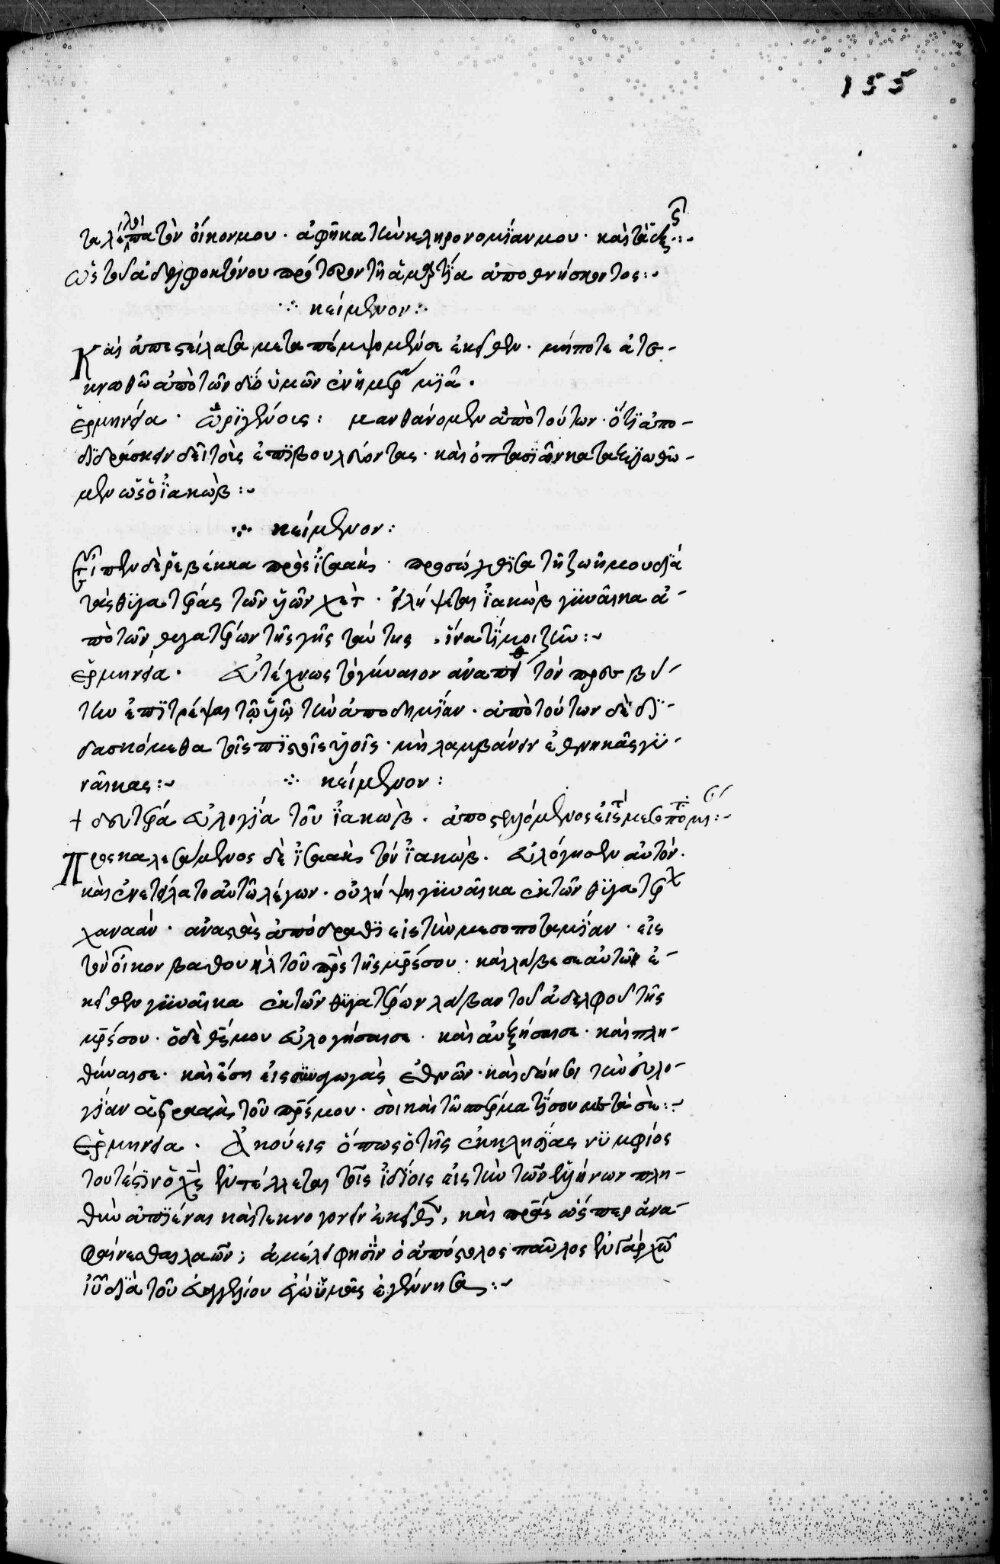 155
ταλέλοιπα τὸν οἶκον μου · ἀφῆκα τὴν κληρονομίαν μου · καὶ τὰ ἑξῆς :~
ὡς τοῦ ἀδελφοκτόνου πρότερον τῇ ἁμαρτία ἀποθνήσκοντος :~
κείμενον :
Καὶ ἀποστείλασα μεταπέμψομαί σε ἐκεῖθεν · μήποτε ἀτε-
κνωθῶ ἀπὸ τῶν δύο ὑμῶν ἐν ἡμέρα μιᾶ .
ἑρμηνεία · ὠριγένους : μανθάνομεν ἀπὸ τούτων · ὅτι ἀπο-
διδράσκειν δεῖ τοὺς ἐπιβουλεύοντας · καὶ ὀπτασιῶν καταξιωθῶ-
μεν ὡς ὁ ἰακώβ :~
κείμενον :
Εἶπεν δὲ ῥεβέκκα πρὸς ἰσαάκ · προσώχθισα τῇ ζωῇ μου διὰ
τὰς θυγατέρας τῶν υἱῶν χέτ · εἰ λήψεται ἰακὼβ γυναῖκα ἀ-
πὸ τῶν θυγατέρων τῆς γῆς ταύτης · ἵνα τί μοι ζῆν :~
ἑρμηνεία · εὐτέχνως τὸ γύναιον ἀναπείθει τὸν πρεσβύ-
την ἐπιτρέψαι τῷ υἱῷ τὴν ἀποδημίαν · ἀπὸ τούτων δὲ δι-
δασκόμεθα τοῖς πιστοῖς υἱοῖς · μὴ λαμβάνειν ἐθνικὰς γυ-
ναῖκας :~ κείμενον :
+ δευτέρα εὐλογία τοῦ ἰακώβ · ἀποστελλόμενος εἰς τὴν μεσοποταμίαν :~
Προσκαλεσάμενος δὲ ἰσαὰκ τὸν ἰακώβ · εὐλόγησεν αὐτόν ·
καὶ ἐνετείλατο αὐτῷ λέγων · οὐ λήψη γυναῖκα ἐκ τῶν θυγατέρων
χαναάν · ἀναστὰς ἀπόδραθι εἰς τὴν μεσοποταμίαν · εἰς
τὸν οἶκον βαθουὴλ τοῦ πρς τῆς μρς σου · καὶ λάβε σεαυτῶ ἐ-
κεῖθεν γυναῖκα ἐκ τῶν θυγατέρων λάβαν τοῦ ἀδελφοῦ τῆς
μρς σου · ὁ δὲ θς μου εὐλογήσαι σε · καὶ αὐξήσαι σε · καὶ πλη-
θύναι σε · καὶ ἔση εἰς συναγωγὰς ἐθνῶν · καὶ δώη σοι τὴν εὐλο-
γίαν ἀβραὰμ τοῦ πρς μου · σοὶ καὶ τῶ σπέρματί σου μετὰ σὲ :~
ἑρμηνεία · Ἀκούεις ὅπως ὁ τῆς ἐκκλησίας νυμφίος
τουτέστιν ὁ χς ἐντέλλεται τοῖς ἰδίοις εἰς τὴν τῶν ἑλλήνων πλη-
θὺν ἀπιέναι καὶ τεκνογονεῖν ἐκεῖθεν, καὶ πρς ὥσπερ ἀνα-
φαίνεσθαι λαῶν ; ἀμέλει φησὶν ὁ ἀπόστολος παῦλος ἐν γὰρ χω
ιυ διὰ τοῦ εὐαγγελίου ἐγὼ ὑμᾶς ἐγέννησα :~